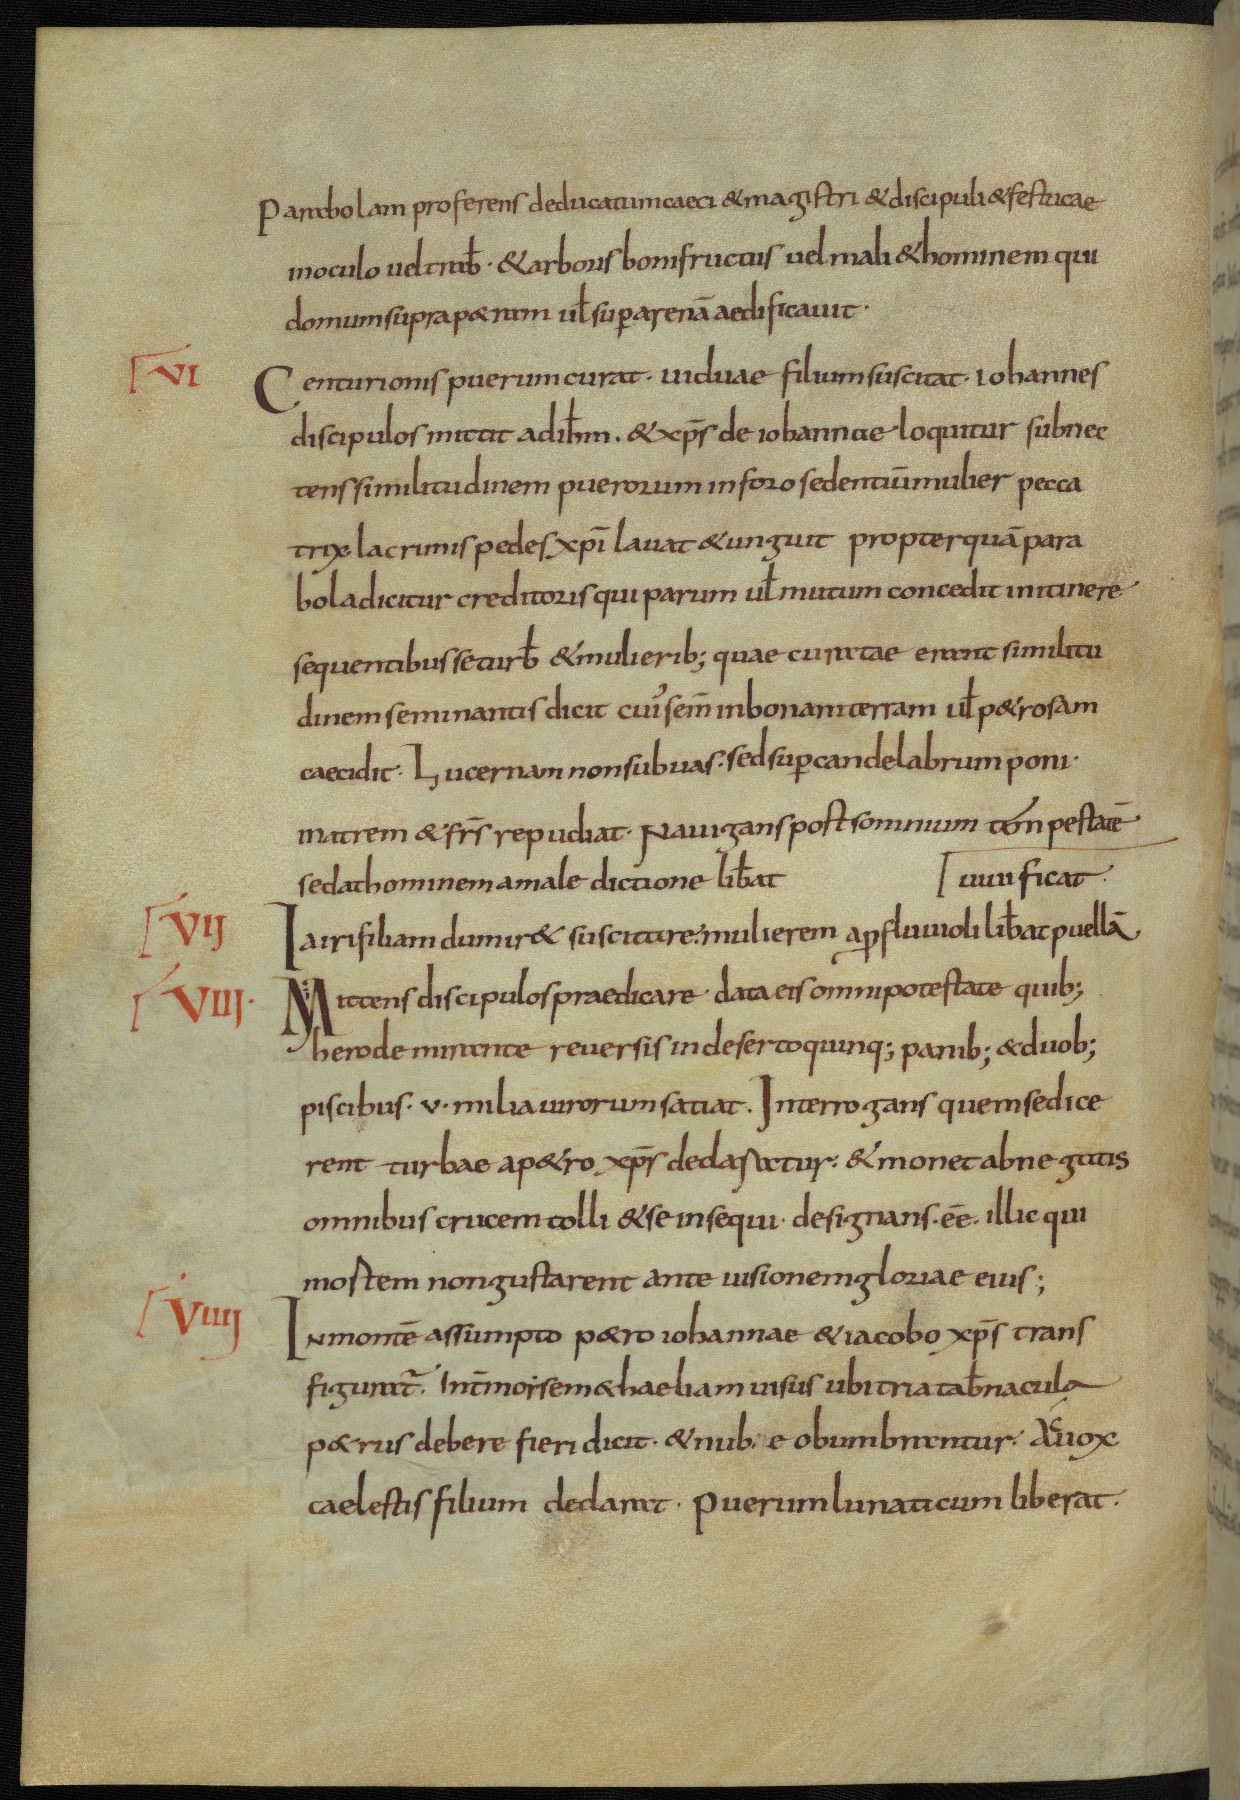 Parabolam proferens deducatum caeci & magistri & discipuli & festucae
in oculo vel trab̄ · & arboris boni fructus vel mali & hominem qui
domum supra p&ram ul̄ sup arenā aedificavit ·
VI Centurionis puerum curat · viduae filium suscitat · iohannes
discipulos mittit ad ih̄m · & xp̄s de iohanne loquitur subnec
tens similitudinem puerorum in foro sedentiū mulier pecca
trix lacrimis pedes xp̄i lavat & unguit propter quā para
bola dicitur creditoris qui parum ul̄ multum concedit in itinere
sequentibus se turb̄ & mulierib; quae curatae erant similitu
dinem seminantis dicit cui' sem̄ in bonam terram ul̄ p&rosam
caecidit · Lucernam non sub vas · sed sup candelabrum poni ·
matrem & fr̄s repudiat · Navigans post somnium tempestatē
sedat hominem a maledictione lib̄at
[vivificat ·
VII Iairi filiam dum ir& suscitare · mulierem a pfluvioli lib̄at puellā
VIII · Mittens discipulos praedicare data eis omni potestate quib;
herode mirante reversis in deserto quinq; panib; & duob;
piscibus · v · milia virorum satiat · Interrogans quem se dice
rent turbae a p&ro xp̄s declaratur · & monet abnegatis
omnibus crucem tolli & se insequi · designans · eē · illic qui
mortem non gustarent ante visionem gloriae eius ;
VIIII In montē assumpto p&ro iohannae & iacobo xp̄s trans
figurat̄ · Int̄ moysem & haeliam visus ubi tria tab̄nacula
p&rus debere fieri dicit · & nub e obumbrantur · & vox
caelestis filium declarat · Puerum lunaticum liberat ·